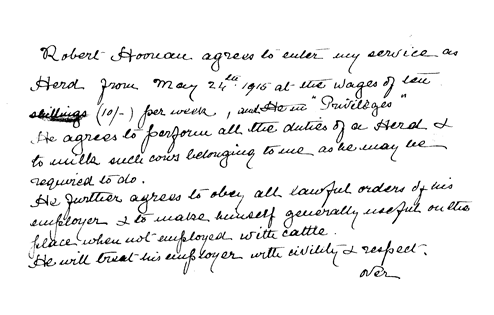 Robert Hoonan agrees to enter my service as
Herd from May 24th. 1915 at the wages of ten
shillings (10/-) per week, and "Privileges"
He agrees to perform all the duties of a Herd &
to milk such cows belonging to me as he may be
required to do.
He further agrees to obey all lawful orders of his
employer & to make himself generally useful on the
place when not employed with cattle.
He will treat his employer with civility & respect.
over